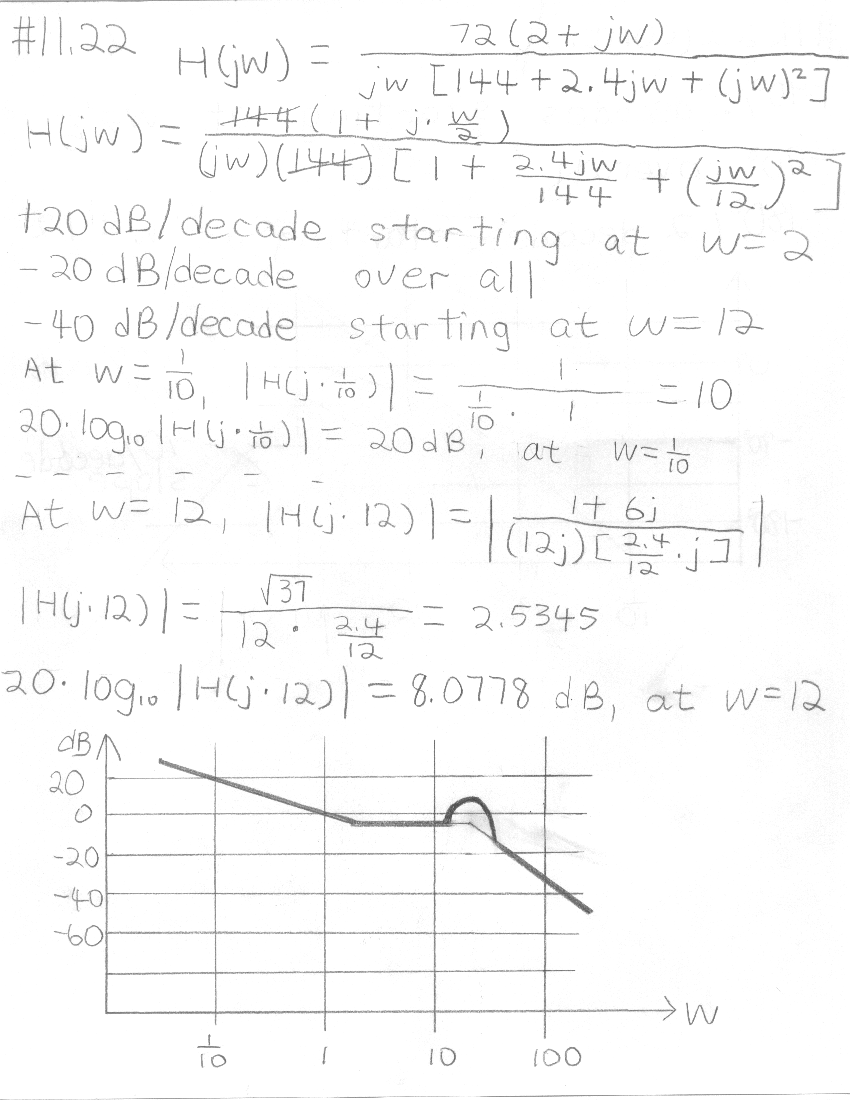 #11.22 H(jw) = 72(2 + jw) / jw [144 + 2.4jw + (jw)²]
H(jw) = 144(1 + j · w/2) / (jw)(144) [1 + 2.4jw/144 + (jw/12)²]
+20 dB/decade starting at w = 2
-20 dB/decade over all
-40 dB/decade starting at w = 12
At w = 1/10, |H(j · 1/10)| = 1 / (1/10 · 1) = 10
20 · log₁₀ |H(j · 1/10)| = 20 dB, at w = 1/10
- - - - -
At w = 12, |H(j · 12)| = |1 + 6j / (12j) [2.4/12 · j]|
|H(j · 12)| = √37 / 12 · 2.4/12 = 2.5345
20 · log₁₀ |H(j · 12)| = 8.0778 dB, at w = 12
dB
20
0
-20
-40
-60
w
1/10 1 10 100